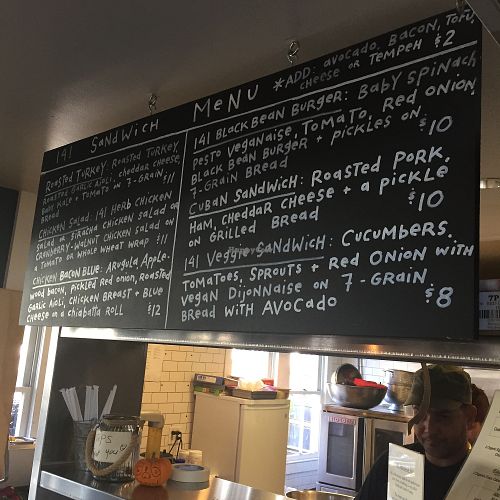 141 SANDWICH MENU
*ADD: AVOCADO, BACON, TOFU,
CHEESE OR TEMPEH $2
ROASTED TURKEY: ROASTED TURKEY,
ROASTED GARLIC AIOLI, CHEDDAR CHEESE,
BABY KALE + TOMATO ON 7-GRAIN
BREAD $11
CHICKEN SALAD: 141 HERB CHICKEN
SALAD OR SIRACHA CHICKEN SALAD OR
CRANBERRY-WALNUT CHICKEN SALAD ON
A TOMATO ON WHOLE WHEAT WRAP $11
CHICKEN BACON BLUE: ARUGULA APPLE-
WOOD BACON, PICKLED RED ONION, ROASTED
GARLIC AIOLI, CHICKEN BREAST + BLUE
CHEESE ON A CHIABATTA ROLL $12
141 BLACK BEAN BURGER: BABY SPINACH
PESTO VEGANAISE, TOMATO, RED ONION,
BLACK BEAN BURGER + PICKLES ON
7-GRAIN BREAD $10
CUBAN SANDWICH: ROASTED PORK,
HAM, CHEDDAR CHEESE + A PICKLE
ON GRILLED BREAD $10
141 VEGGIE SANDWICH: CUCUMBERS,
TOMATOES, SPROUTS + RED ONION WITH
VEGAN DIJONNAISE ON 7-GRAIN
BREAD WITH AVOCADO $8
TIPS
YOU